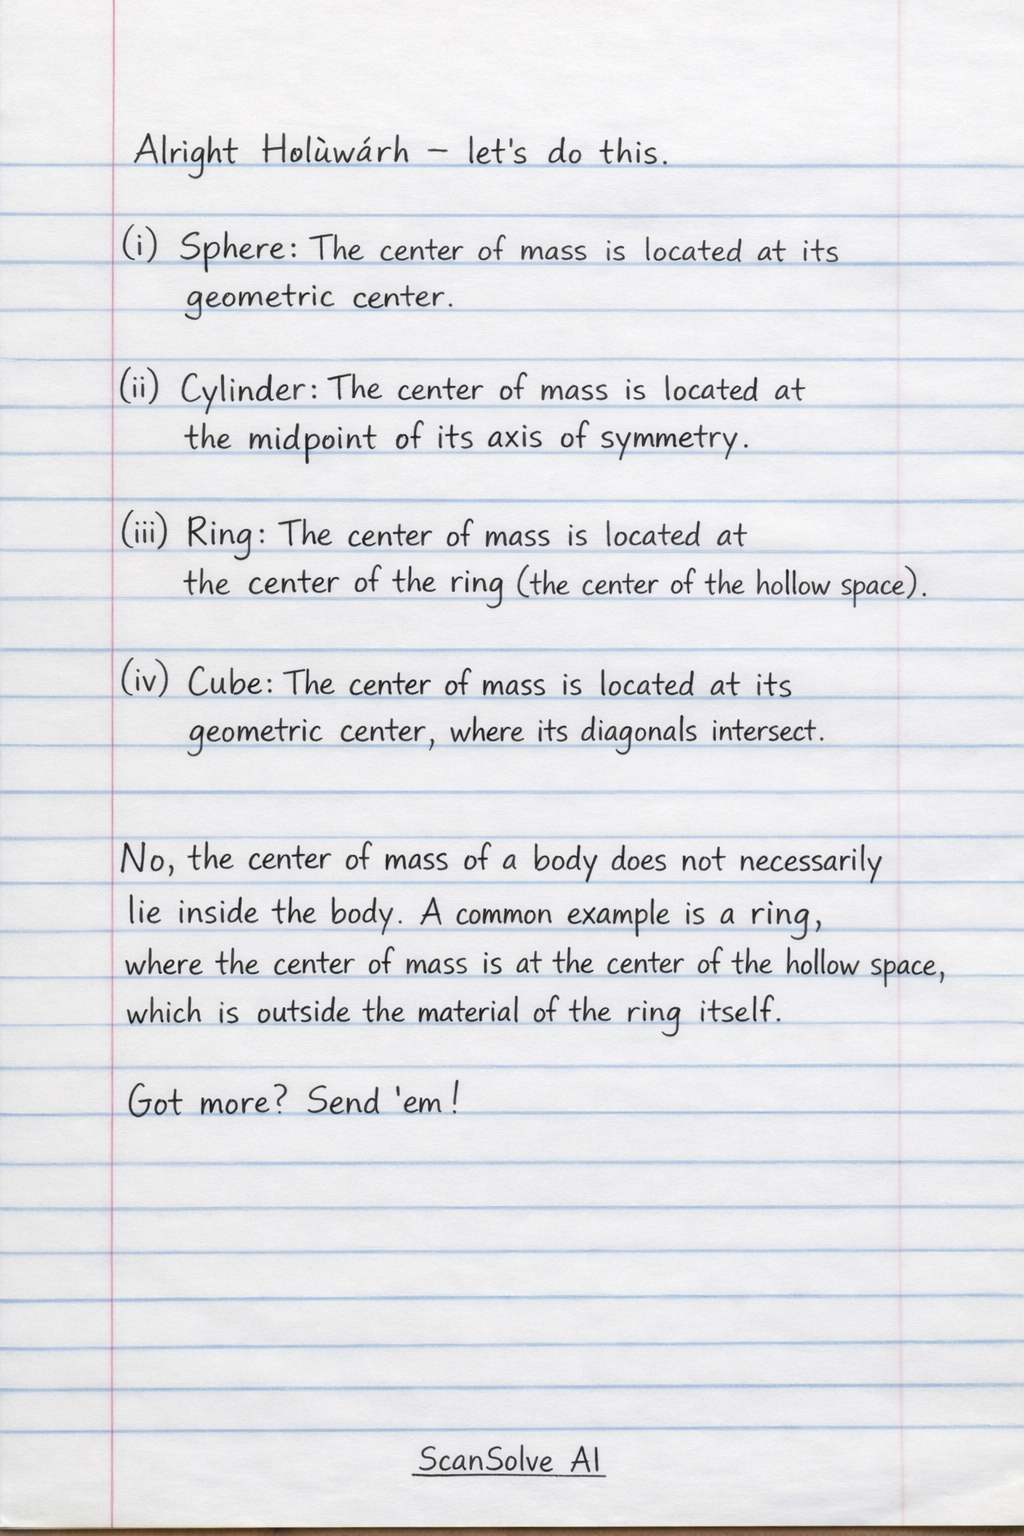 Alright Holùwárh – let's do this.
(i) Sphere: The center of mass is located at its
geometric center.
(ii) Cylinder: The center of mass is located at
the midpoint of its axis of symmetry.
(iii) Ring: The center of mass is located at
the center of the ring (the center of the hollow space).
(iv) Cube: The center of mass is located at its
geometric center, where its diagonals intersect.
No, the center of mass of a body does not necessarily
lie inside the body. A common example is a ring,
where the center of mass is at the center of the hollow space,
which is outside the material of the ring itself.
Got more? Send 'em!
ScanSolve AI